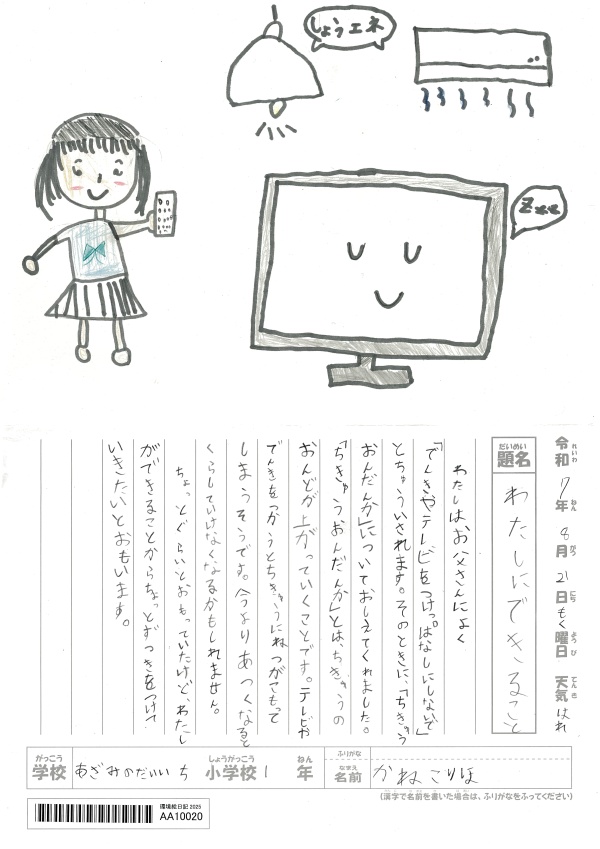 しょうエネ
Zzz
令和7年8月21日もく曜日 天気はれ
れいわ ねん がつ にち ようび てんき
だいめい
題名
わたしにできること
わたしは、お父さんによく
「でんきやテレビをつけっぱなしにしないで」
とちゅういされます。そのときに、「ちきゅう
おんだんか」についておしえてくれました。
「ちきゅうおんだんか」とは、ちきゅうの
おんどが上がっていくことです。テレビや
でんきをつかうとちきゅうにねつがこもって
しまうそうです。今よりあつくなると
くらしていけなくなるかもしれません。
ちょっとぐらいとおもっていたけど、わたし
ができることからちょっとずつきをつけて
いきたいとおもいます。
がっこう
学校
あざみのだいいち
しょうがっこう
小学校
1
ねん
年
ふりがな
なまえ
名前
かねこりほ
(漢字で名前を書いた場合は、ふりがなをふってください)
環境絵日記 2025
AA10020